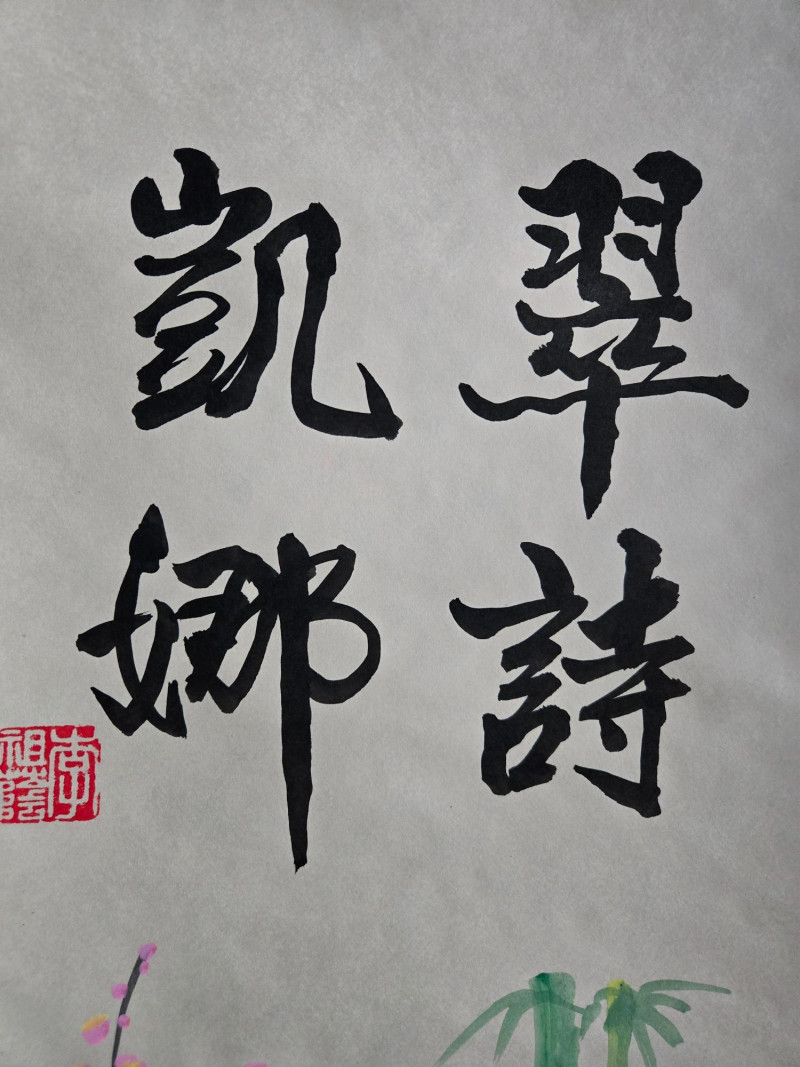 翠詩
凱娜
李祖蔭